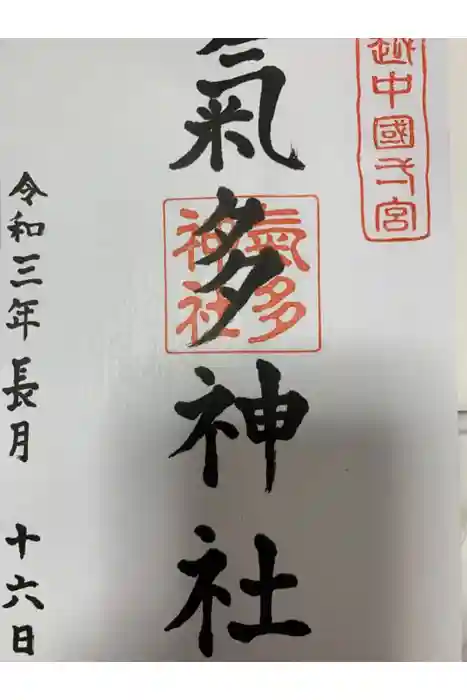 越中國一宮
氣多神社
氣多
神社
令和三年長月 十六日